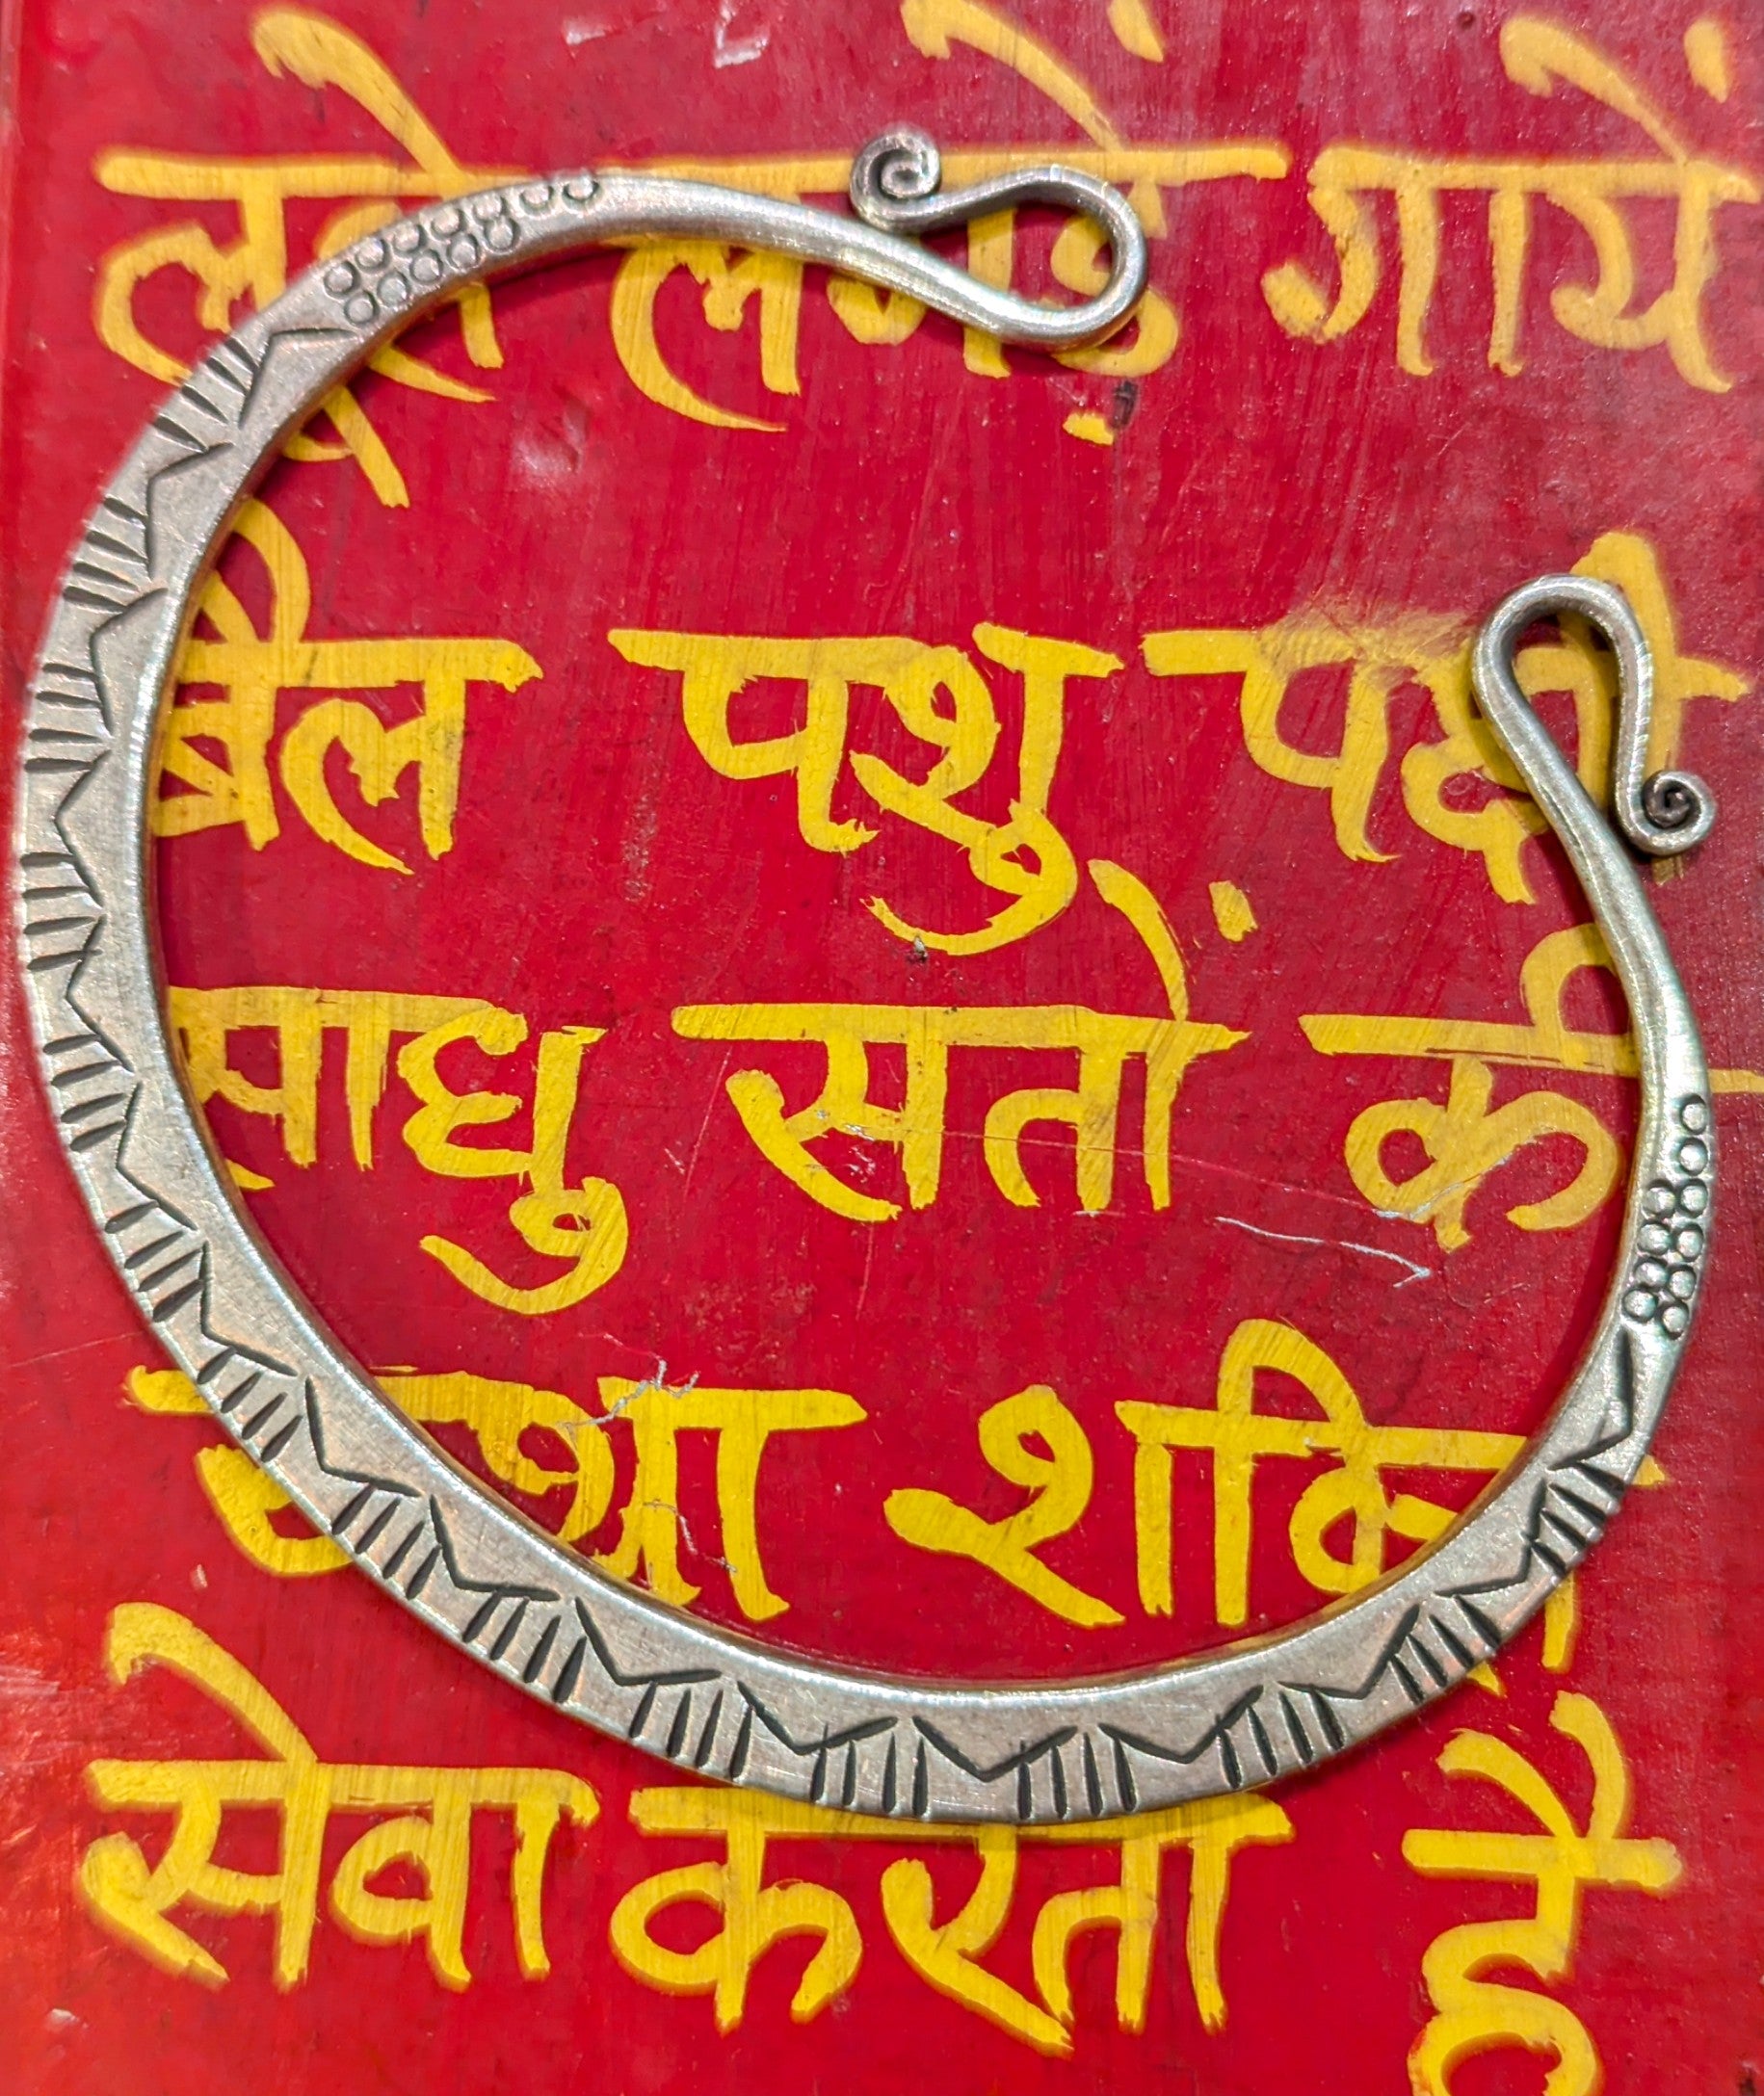 लूले लगड़ें गायें
बैल पशु पक्षी
साधु सतों की
यथा शक्ति
सेवा करता है